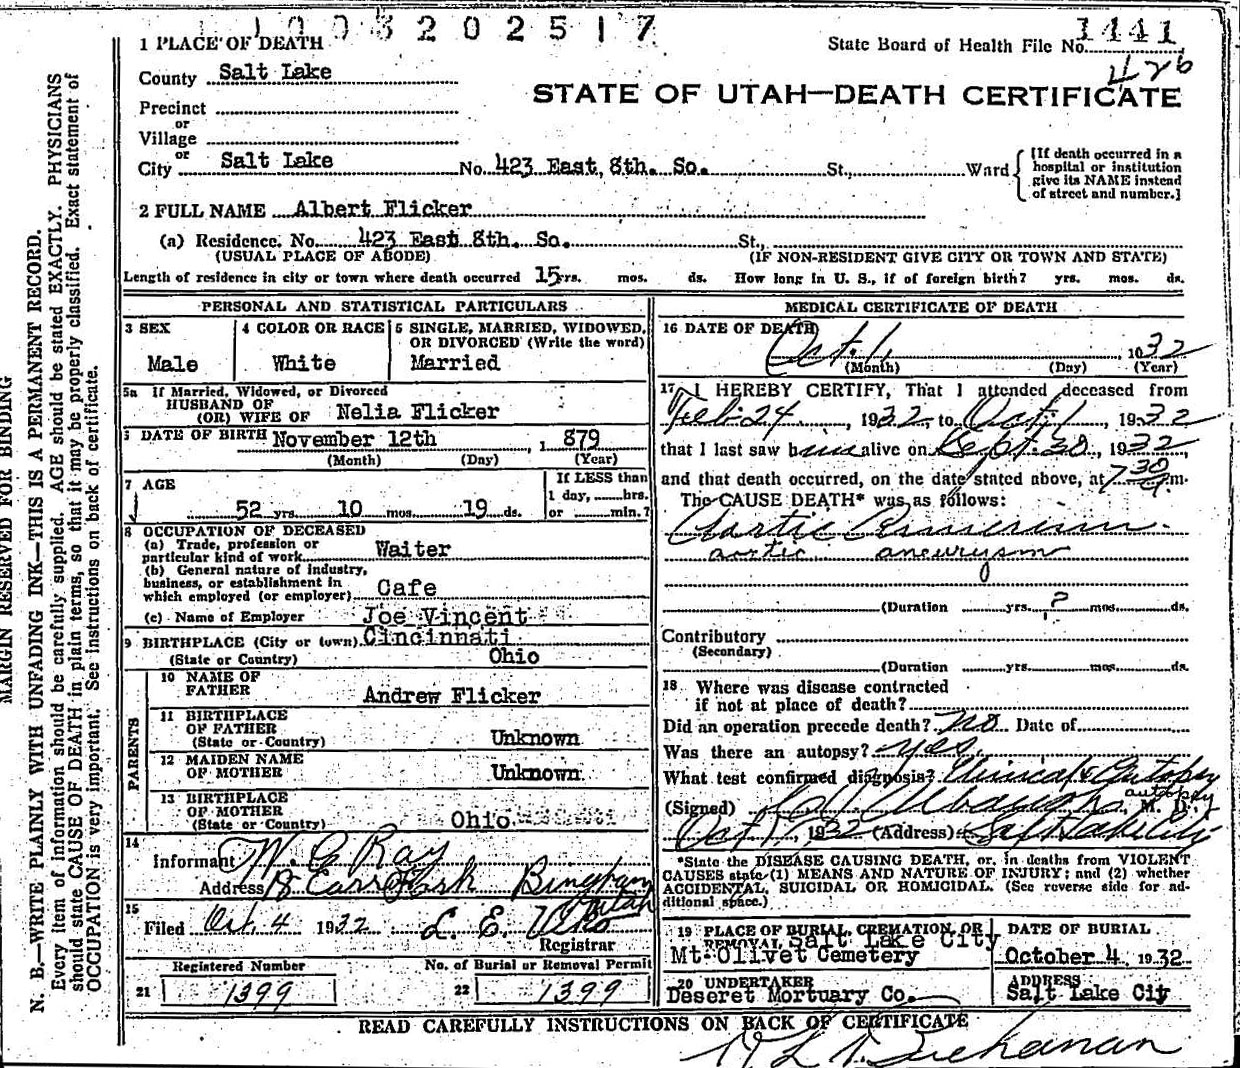 1003202517
1 PLACE OF DEATH
State Board of Health File No. 1441
426
County Salt Lake
STATE OF UTAH—DEATH CERTIFICATE
Precinct
or
Village
or
City Salt Lake No. 423 East 8th. So. St., Ward
[If death occurred in a
hospital or institution
give its NAME instead
of street and number.]
2 FULL NAME Albert Flicker
(a) Residence. No. 423 East 8th. So. St.,
(USUAL PLACE OF ABODE) (IF NON-RESIDENT GIVE CITY OR TOWN AND STATE)
Length of residence in city or town where death occurred 15 yrs. mos. ds. How long in U. S., if of foreign birth? yrs. mos. ds.
PERSONAL AND STATISTICAL PARTICULARS
3 SEX
Male
4 COLOR OR RACE
White
5 SINGLE, MARRIED, WIDOWED,
OR DIVORCED (Write the word)
Married
5a If Married, Widowed, or Divorced
HUSBAND OF
(OR) WIFE OF Nelia Flicker
DATE OF BIRTH November 12th, 1879
(Month) (Day) (Year)
7 AGE
52 yrs. 10 mos. 19 ds.
If LESS than
1 day, hrs.
or min.?
8 OCCUPATION OF DECEASED
(a) Trade, profession or
particular kind of work Waiter
(b) General nature of industry,
business, or establishment in
which employed (or employer) Cafe
(c) Name of Employer Joe Vincent
9 BIRTHPLACE (City or town) Cincinnati
(State or Country) Ohio
PARENTS
10 NAME OF
FATHER Andrew Flicker
11 BIRTHPLACE
OF FATHER
(State or Country) Unknown
12 MAIDEN NAME
OF MOTHER Unknown
13 BIRTHPLACE
OF MOTHER
(State or Country) Ohio
14
Informant W. G. Ray
Address Bingham
Utah
15
Filed Oct. 4 1932 L. E.
Registrar
Registered Number
21 1399
No. of Burial or Removal Permit
22 1399
MEDICAL CERTIFICATE OF DEATH
16 DATE OF DEATH
Oct. 1, 1932
(Month) (Day) (Year)
17 I HEREBY CERTIFY, That I attended deceased from
Feb. 24, 1932, to Oct. 1, 1932
that I last saw him alive on Sept. 30, 1932,
and that death occurred, on the date stated above, at 7 30 a.m.
The CAUSE DEATH* was as follows:
Aortic
aortic aneurysm
(Duration yrs. ? mos. ds.
Contributory
(Secondary)
(Duration yrs. mos. ds.
18 Where was disease contracted
if not at place of death?
Did an operation precede death? No Date of
Was there an autopsy? Yes.
What test confirmed diagnosis? Clinical & Autopsy
autopsy
(Signed) M. D.
Oct 1, 1932 (Address) Salt Lake City
*State the DISEASE CAUSING DEATH, or, in deaths from VIOLENT
CAUSES state (1) MEANS AND NATURE OF INJURY; and (2) whether
ACCIDENTAL, SUICIDAL OR HOMICIDAL. (See reverse side for ad-
ditional space.)
19 PLACE OF BURIAL, CREMATION OR
REMOVAL Salt Lake City
Mt. Olivet Cemetery
DATE OF BURIAL
October 4 1932
20 UNDERTAKER
Deseret Mortuary Co.
ADDRESS
Salt Lake City
READ CAREFULLY INSTRUCTIONS ON BACK OF CERTIFICATE
Buchanan
MARGIN RESERVED FOR BINDING
N. B.—WRITE PLAINLY WITH UNFADING INK—THIS IS A PERMANENT RECORD.
Every item of information should be carefully supplied. AGE should be stated EXACTLY. PHYSICIANS
should state CAUSE OF DEATH in plain terms, so that it may be properly classified. Exact statement of
OCCUPATION is very important. See instructions on back of certificate.